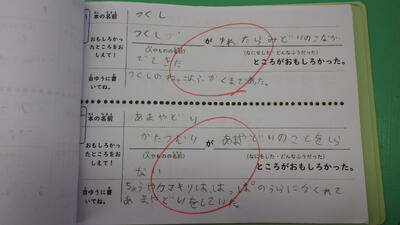 本の名前 つくし
おもしろかったところをおしえて！ つくし が われたらみどりのこなが
(人やものの名前) (なにをした・どんなふうだった)
でてきた ところがおもしろかった。
自ゆうに書いてね。 つくしのね。はふかくまであった。
本の名前 あまやどり
おもしろかったところをおしえて！ かたつむり が あまやどりのことをしら
(人やものの名前) (なにをした・どんなふうだった)
ない ところがおもしろかった。
自ゆうに書いてね。 ちょうやカマキリは、はっぱのうらにかくれて
あまやどりをしていた。